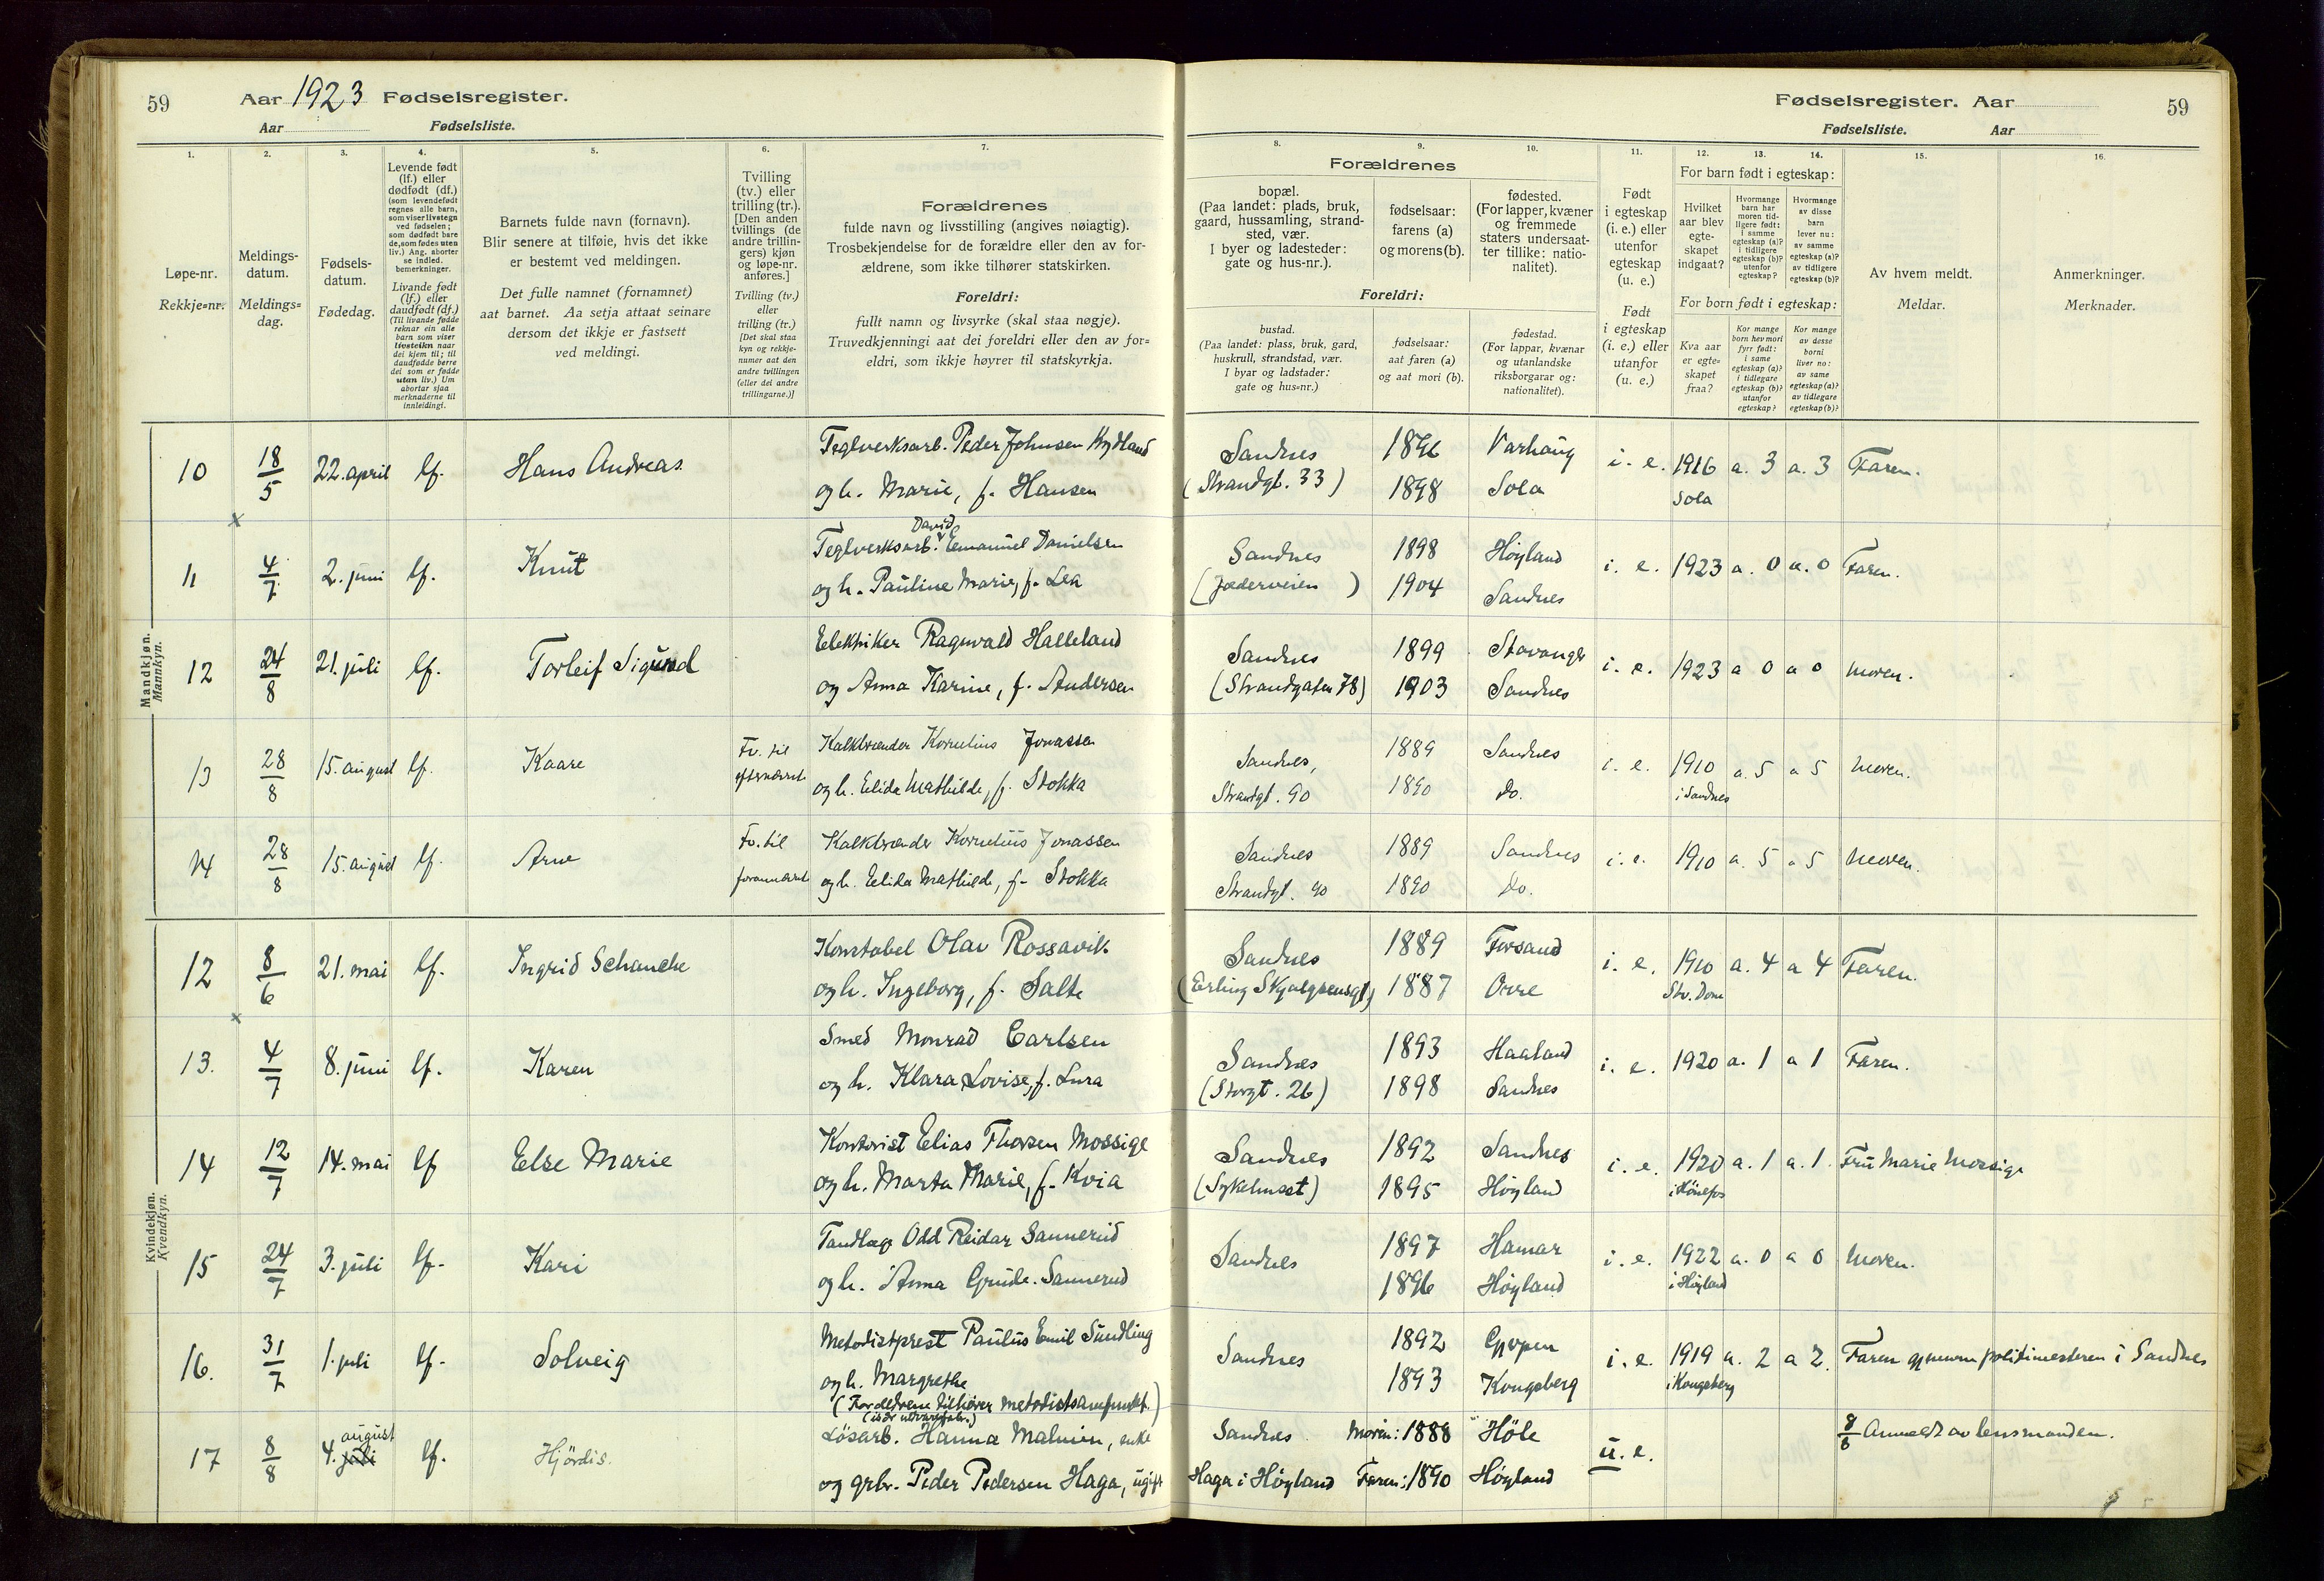 59 Aar 1923 Fødselsregister.
Aar Fødselsliste.
1. 2. 3. 4. 5. 6. 7.
Løpe-nr.
Rekkje=nr.
Meldings-
datum.
Meldings=
dag.
Fødsels-
datum.
Fødedag.
Levende født
(lf.) eller
dødfødt (df.)
(som levendefødt
regnes alle barn,
som viser livstegn
ved fødselen;
som dødfødt bare
de, som fødes uten
liv.) Ang. aborter
se indled.
bemerkninger.
Livande født
(lf.) eller
daudfødt (df.)
(Til livande fødde
reknar ein alle
barn som viser
livsteikn naar
dei kjem til; til
daudfødde berre
dei som er fødde
utan liv.) Um
abortar sjaa
merknaderne til
innleidingi.
Barnets fulde navn (fornavn).
Blir senere at tilføie, hvis det ikke
er bestemt ved meldingen.
Det fulle namnet (fornamnet)
aat barnet. Aa setja attaat seinare
dersom det ikkje er fastsett
ved meldingi.
Tvilling
(tv.) eller
trilling (tr.).
[Den anden
tvillings (de
andre trillin-
gers) kjøn
og løpe-nr.
anføres.]
Tvilling (tv.)
eller
trilling (tr.)
[Det skal staa
kyn og rekkje-
numer aat den
andre tvillingen
(eller dei andre
trillingarne.)]
Forældrenes
fulde navn og livsstilling (angives nøiagtig).
Trosbekjendelse for de forældre eller den av for-
ældrene, som ikke tilhører statskirken.
Foreldri:
fullt namn og livsyrke (skal staa nøgje).
Truvedkjenningi aat dei foreldri eller den av for=
eldri, som ikkje høyrer til statskyrkja.
Mandkjøn.
Mannkyn.
10 18/5 22. april lf. Hans Andreas. Teglverksarb. Peder Johnsen Kydland
og h. Marie, f. Hansen
David
11 4/7 2. juni lf. Knut Teglverksarb. Emanuel Danielsen
og h. Pauline Marie, f. Lea
12 24/8 21. juli lf. Torleif Sigurd Elektriker Ragnvald Halleland
og Anna Karine, f. Andersen
13 28/8 15. august lf. Kaare Tv. til Kalkbrænder Kornelius Jonassen
efternævnte og h. Elida Mathilde, f. Stokka
14 28/8 15. august lf. Arne Tv. til Kalkbrænder Kornelius Jonassen
forannævnte og h. Elida Mathilde, f. Stokka
Kvindekjøn.
Kvendkyn.
12 8/6 21. mai lf. Ingrid Schanche Konstabel Olav Rossavik
og h. Ingeborg, f. Salte
13. 4/7 8. juni lf. Karen Smed Monrad Carlsen
og h. Klara Lovise, f. Lura
14 12/7 14. mai lf Else Marie Kontorist Elias Thorsen Mossige
og h. Marta Marie, f. Kvia
15 24/7 3. juli lf. Kari Tandlæge Odd Reidar Sannerud
og h. Anna Grude-Sannerud
16. 31/7 1. juli lf. Solveig Metodistprest Paulus Emil Sundling
og h. Margrethe
(Forældrene tilhører metodistsamfundet.)
august
17 8/8 4. juli lf. Hjördis. Lösarb. Hanna Malmin, enke
og grbr. Peder Pedersen Haga, ugift
Fødselsregister. Aar 59
Fødselsliste. Aar
8. 9. 10. 11. 12. 13. 14. 15. 16.
Forældrenes
bopæl.
(Paa landet: plads, bruk,
gaard, hussamling, strand-
sted, vær.
I byer og ladesteder:
gate og hus-nr.).
fødselsaar:
farens (a)
og morens (b).
fødested.
(For lapper, kvæner
og fremmede
staters undersaat-
ter tillike: natio-
nalitet).
Foreldri:
bustad.
(Paa landet: plass, bruk, gard,
huskrull, strandstad, vær.
I byar og ladstader:
gate og hus=nr.)
fødselsaar:
aat faren (a)
og aat mori (b).
fødestad.
(For lappar, kvænar
og utanlandske
riksborgarar og:
nationalitet).
Født
i egteskap
(i. e.) eller
utenfor
egteskap
(u. e.)
Født
i egteskap
(i. e.) eller
utanfor
(u. e.)
For barn født i egteskap:
Hvilket
aar blev
egte-
skapet
indgaat?
Hvormange
barn har
moren tid-
ligere født:
i samme
egteskap (a)?
i tidligere
egteskap (b)?
utenfor
egteskap?
Hvormange
av disse
barn
lever nu:
av samme
egteskap (a)?
av tidligere
egteskap (b)?
For born født i egteskap:
Kva aar
er egte=
skapet
fraa?
Kor mange
born hev mori
fyrr født:
i same
egteskap (a)?
i tidlegare
egteskap (b)?
utanfor
egteskap?
Kor mange
av desse
borni
liver no:
av same
egteskap (a)?
av tidlegare
egteskap (b)?
Av hvem meldt.
Meldar.
Anmerkninger.
Merknader.
Sandnes 1896 Varhaug i. e. 1916 a. 3 a. 3 Faren.
(Strandgt. 33) 1898 Sola Sola
Sandnes 1898 Høyland i. e. 1923 a. 0 a. 0 Faren.
(Jæderveien ) 1904 Sandnes
Sandnes 1899 Stavanger i. e. 1923 a 0 a 0 Moren.
(Strandgaten 78) 1903 Sandnes
Sandnes, 1889 Sandnes i. e. 1910 a. 5 a 5 Moren.
Strandgt. 90 1890 do. i Sandnes
Sandnes 1889 Sandnes i. e. 1910 a. 5 a 5 Moren.
Strandgt. 90 1890 do.
Sandnes 1889 Forsand i. e. 1910 a. 4 a 4 Faren.
(Erling Skjalgsensgt) 1887 Orre Stv. Dom
Sandnes 1893 Haaland i. e. 1920 a. 1 a 1 Faren.
(Storgt. 26) 1898 Sandnes
Sandnes 1892 Sandnes i. e. 1920 a. 1 a. 1. Fru Marie Mossige
(Sykehuset) 1895 Höyland i Hönefos
Sandnes 1897 Hamar i. e. 1922 a. 0 a 0 Moren.
1896 Höyland i Höyland
Sandnes 1892 Gjøpen i. e. 1919 a. 2 a 2. Faren gjennem politimesteren i Sandnes
1893 Kongsberg i Kongsberg
Sandnes. Moren: 1888 Höle u. e. 8/8 Anmeldt av lensmanden.
Haga i Höyland Faren: 1890 Höyland